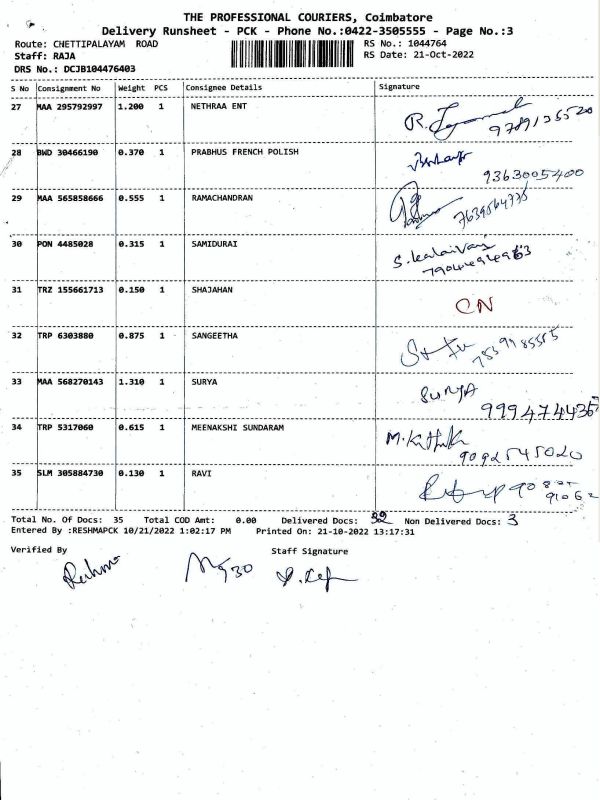 THE PROFESSIONAL COURIERS, Coimbatore
Delivery Runsheet - PCK - Phone No.:0422-3505555 - Page No.:3
Route: CHETTIPALAYAM ROAD RS No.: 1044764
Staff: RAJA RS Date: 21-Oct-2022
DRS No.: DCJB104476403
S No Consignment No Weight PCS Consignee Details Signature
27 MAA 295792997 1.200 1 NETHRAA ENT
28 BWD 30466190 0.370 1 PRABHUS FRENCH POLISH
9363005400
29 MAA 565858666 0.555 1 RAMACHANDRAN
30 PON 4485028 0.315 1 SAMIDURAI S.kalaivani
31 TRZ 155661713 0.150 1 SHAJAHAN CN
32 TRP 6303880 0.875 1 SANGEETHA
33 MAA 568270143 1.310 1 SURYA SURYA
34 TRP 5317060 0.615 1 MEENAKSHI SUNDARAM
9092545020
35 SLM 305884730 0.130 1 RAVI
Total No. Of Docs: 35 Total COD Amt: 0.00 Delivered Docs: 32 Non Delivered Docs: 3
Entered By :RESHMAPCK 10/21/2022 1:02:17 PM Printed On: 21-10-2022 13:17:31
Verified By Staff Signature